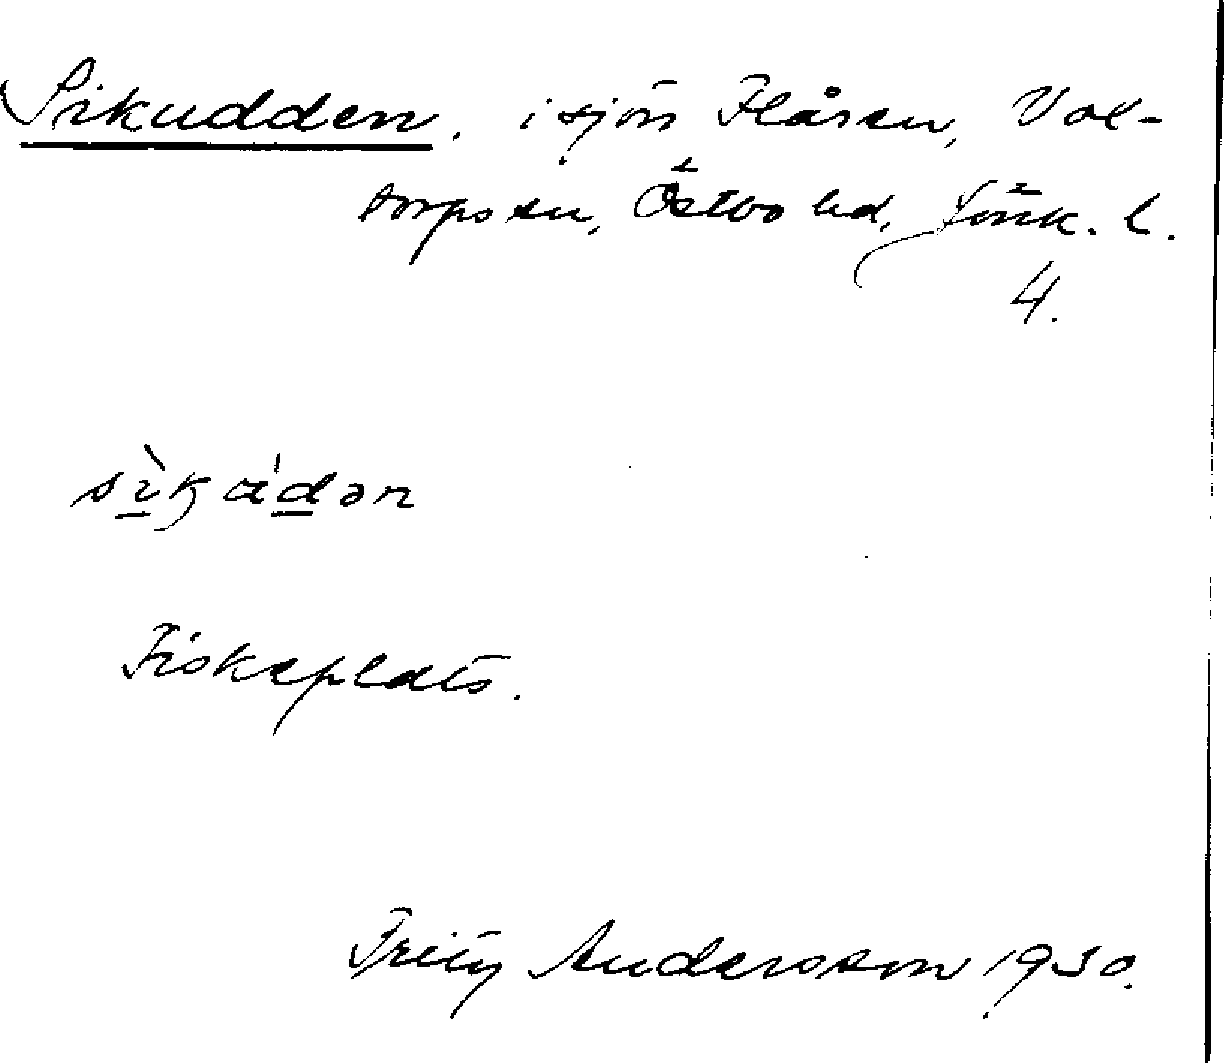 Sikudden. i sjön Flåren, Vol-
torps sn, Östbo hd, Jönk. l.
4.
Fiskeplats.
Fritz Andersson 1930.